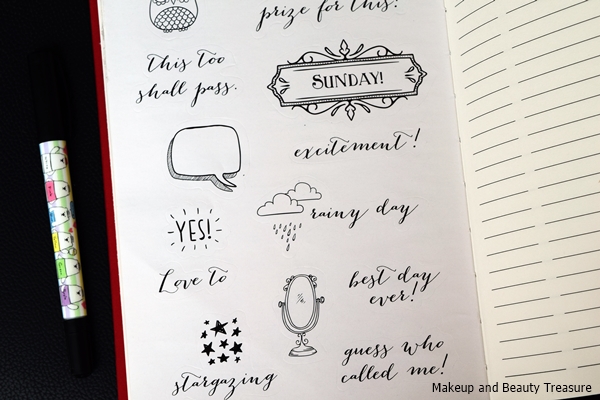 prize for this!
this too
shall pass.
SUNDAY!
excitement!
YES!
rainy day
Love to
best day
ever!
stargazing
guess who
called me!
Makeup and Beauty Treasure